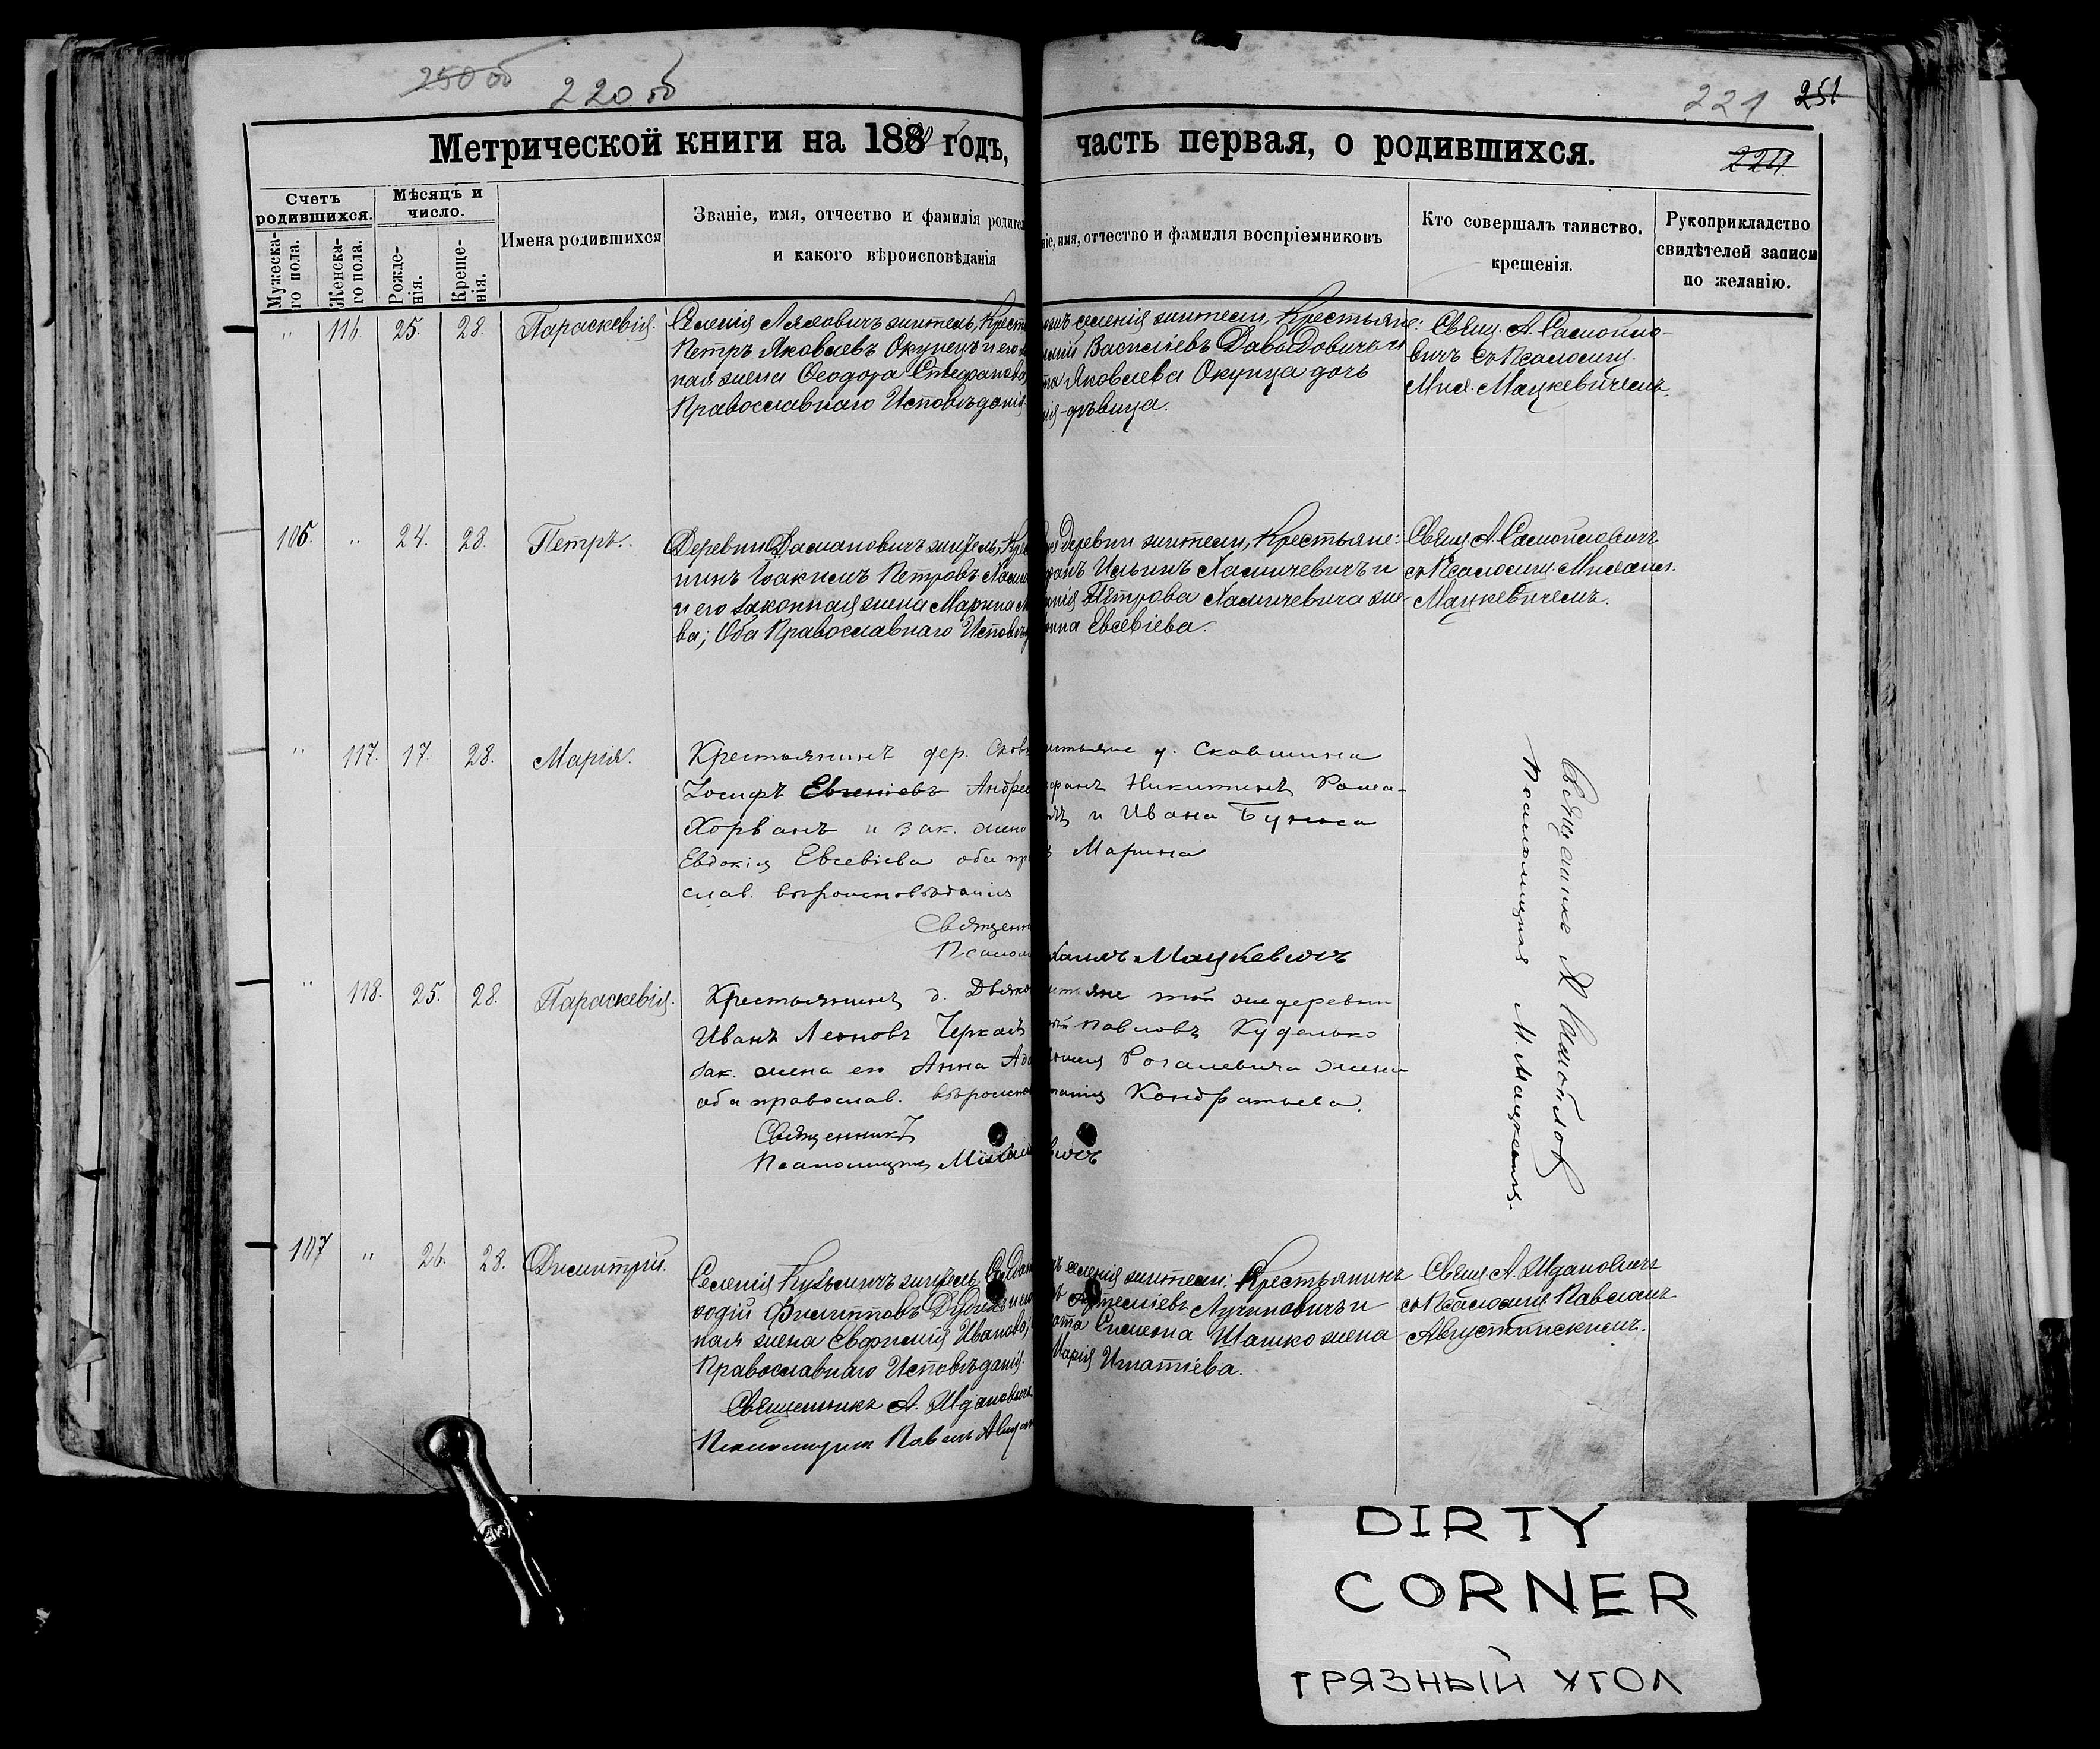 250 об
220 об
221 251
224
Метрической книги на 188 годъ, часть первая, о родившихся.
Счетъ родившихся.
Мужеска-го пола.
Женска-го пола.
Мѣсяцъ и число.
Рожде-нія.
Креще-нія.
Имена родившихся
Званіе, имя, отчество и фамилія родител
и какого вѣроисповѣданія
ніе, имя, отчество и фамилія воспріемниковъ
Кто совершалъ таинство.
крещенія.
Рукоприкладство
свидѣтелей записи
по желанію.
" 116. 25. 28. Параскевія.
Селенія Ляховичъ житель, Крест
Петръ Яковлевъ Окунецъ и его
ная жена Ѳеодора Стефанова,
Православнаго Исповѣданія.
селенія жители, Крестьяне:
Васильевъ Давыдовичъ и
Яковлева Окунца дочь
дѣвица.
Свящ. А. Самойло-
вичъ съ Псаломщ.
Мих. Мацкевичемъ.
106. " 24. 28. Петръ.
Деревни Дамановичъ житель, Крес
нинъ Іоакимъ Петровъ
и его законная жена Марина
ва; Оба Православнаго Исповѣд
деревни жители, Крестьяне:
Ильинъ Хамичевичъ и
Петрова Хамичевича же-
Евсевіева.
Свящ. А. Самойловичъ
съ Псаломщ. Михаил.
Мацкевичемъ.
" 117. 17. 28. Марія.
Крестьянинъ дер.
Іосифъ Евгеніевъ Андре
Хорванъ и зак. жена
Евдокія Евсевіева оба пр
слав. вѣроисповѣданія
Священн
Псалом
д. Сковшина
Никитинъ Рома-
и Ивана Бункса
Марина
хаилъ Мацкевичъ
Священникъ А Самойлов
Псаломщикъ М. Мацкевичъ.
" 118. 25. 28. Параскевія.
Крестьянинъ д.
Иванъ Леоновъ Черкас
зак. жена его Анна Ад
оба православ. вѣроиспов
Священникъ
Псаломщикъ Михаил
той же деревни
Павловъ Куделько
Рогалевича жена
Кондратьева.
вичъ
107 " 26. 28. Димитрій.
Селенія Кузьмичъ житель, Солдат
Филипповъ
ная жена Евфимія Иванова;
Православнаго Исповѣданія.
Священникъ А. Ждановичъ
Псаломщикъ Павелъ Август
селенія жители: Крестьянинъ
Лучиновичъ и
Симеона Шашко жена
Марія Игнатіева.
Свящ. А. Ждановичъ
съ Псаломщ. Павломъ
Августинскимъ.
DIRTY
CORNER
ГРЯЗНЫЙ УГОЛ